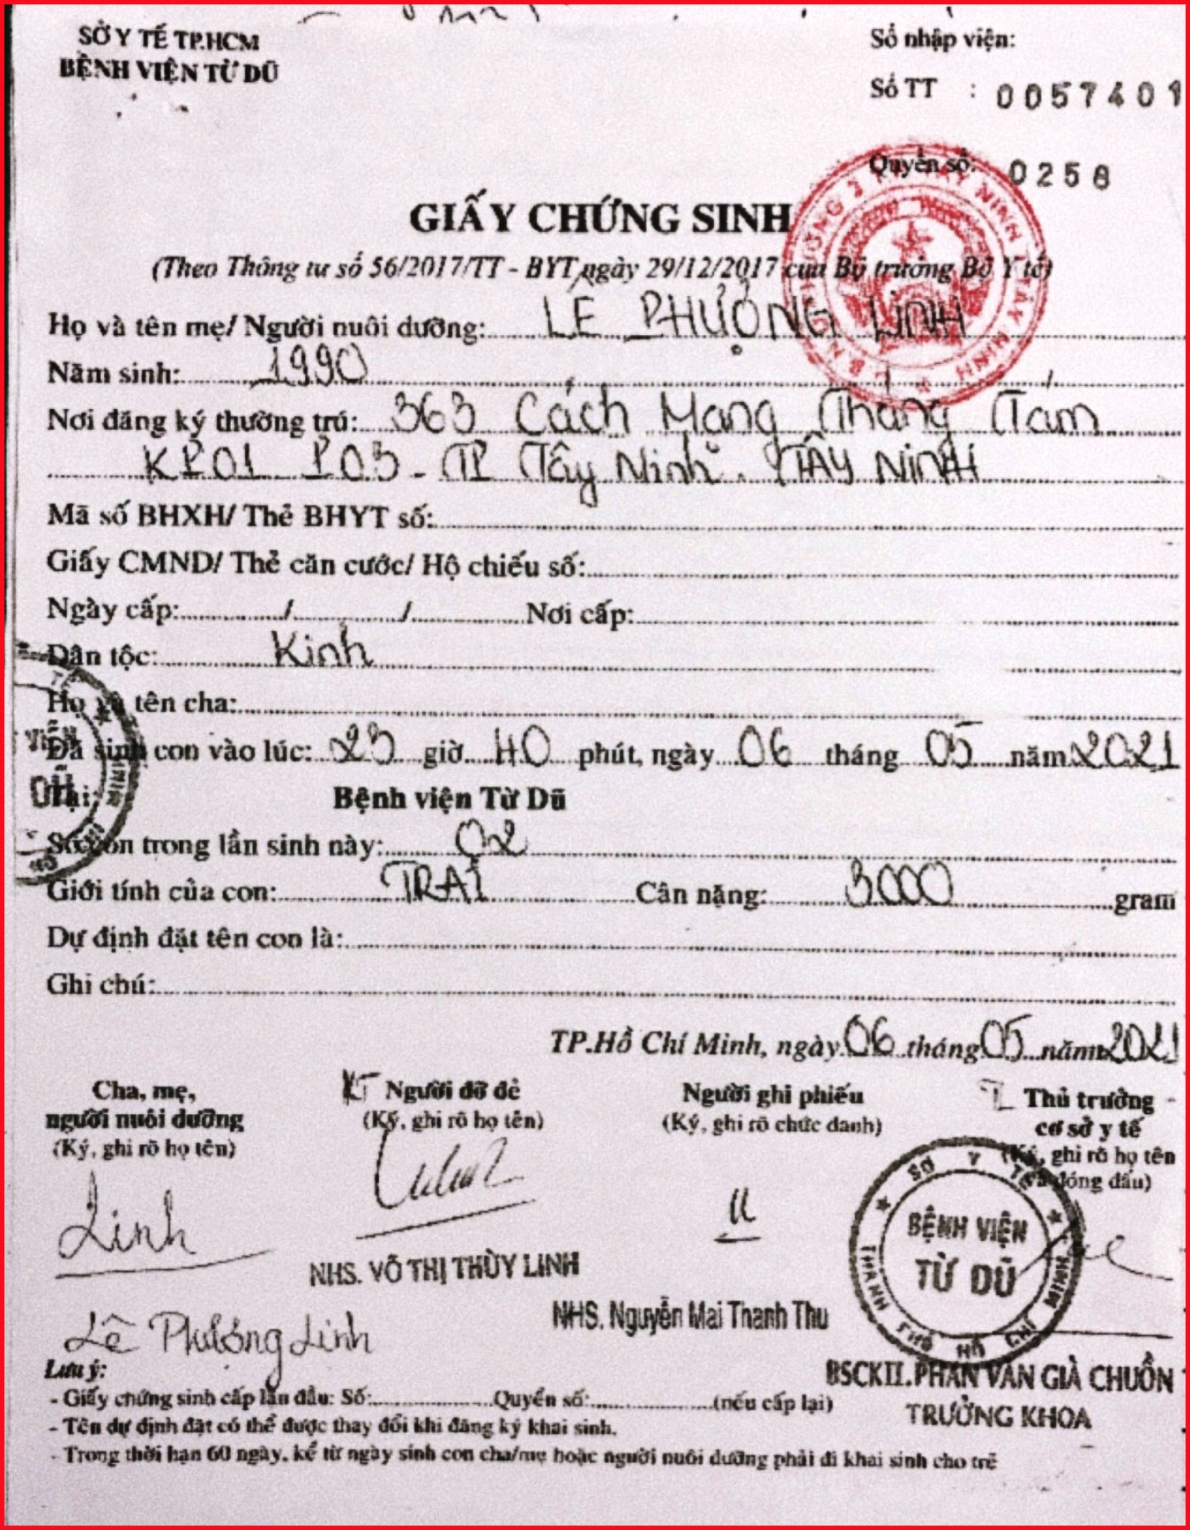 SỞ Y TẾ TP.HCM
BỆNH VIỆN TỪ DŨ
Số nhập viện:
Số TT : 0057401
Quyển số: 0258
GIẤY CHỨNG SINH
(Theo Thông tư số 56/2017/TT - BYT ngày 29/12/2017 của Bộ trưởng Bộ Y tế)
Họ và tên mẹ/ Người nuôi dưỡng: LÊ PHƯỢNG LINH
Năm sinh: 1990
Nơi đăng ký thường trú: 363 Cách Mạng Tháng Tám
KP.01 P.03 - TP Tây Ninh. TÂY NINH
Mã số BHXH/ Thẻ BHYT số:
Giấy CMND/ Thẻ căn cước/ Hộ chiếu số:
Ngày cấp: / / Nơi cấp:
Dân tộc: Kinh
Họ và tên cha:
Đã sinh con vào lúc: 23 giờ 40 phút, ngày 06 tháng 05 năm 2021
Tại: Bệnh viện Từ Dũ
Số con trong lần sinh này: 02
Giới tính của con: TRAI Cân nặng: 3000 gram
Dự định đặt tên con là:
Ghi chú:
TP.Hồ Chí Minh, ngày 06 tháng 05 năm 2021
Cha, mẹ,
người nuôi dưỡng
(Ký, ghi rõ họ tên)
KT Người đỡ đẻ
(Ký, ghi rõ họ tên)
Người ghi phiếu
(Ký, ghi rõ chức danh)
Thủ trưởng
cơ sở y tế
(Ký, ghi rõ họ tên
và đóng dấu)
SỞ Y TẾ
BỆNH VIỆN
TỪ DŨ
THÀNH PHỐ HỒ CHÍ MINH
Linh
NHS. VÕ THỊ THÙY LINH
NHS. Nguyễn Mai Thanh Thu
Lê Phượng Linh
BSCKII. PHAN VĂN GIÀ CHUỒN
TRƯỞNG KHOA
Lưu ý:
- Giấy chứng sinh cấp lần đầu: Số: Quyển số: (nếu cấp lại)
- Tên dự định đặt có thể được thay đổi khi đăng ký khai sinh.
- Trong thời hạn 60 ngày, kể từ ngày sinh con cha/mẹ hoặc người nuôi dưỡng phải đi khai sinh cho trẻ